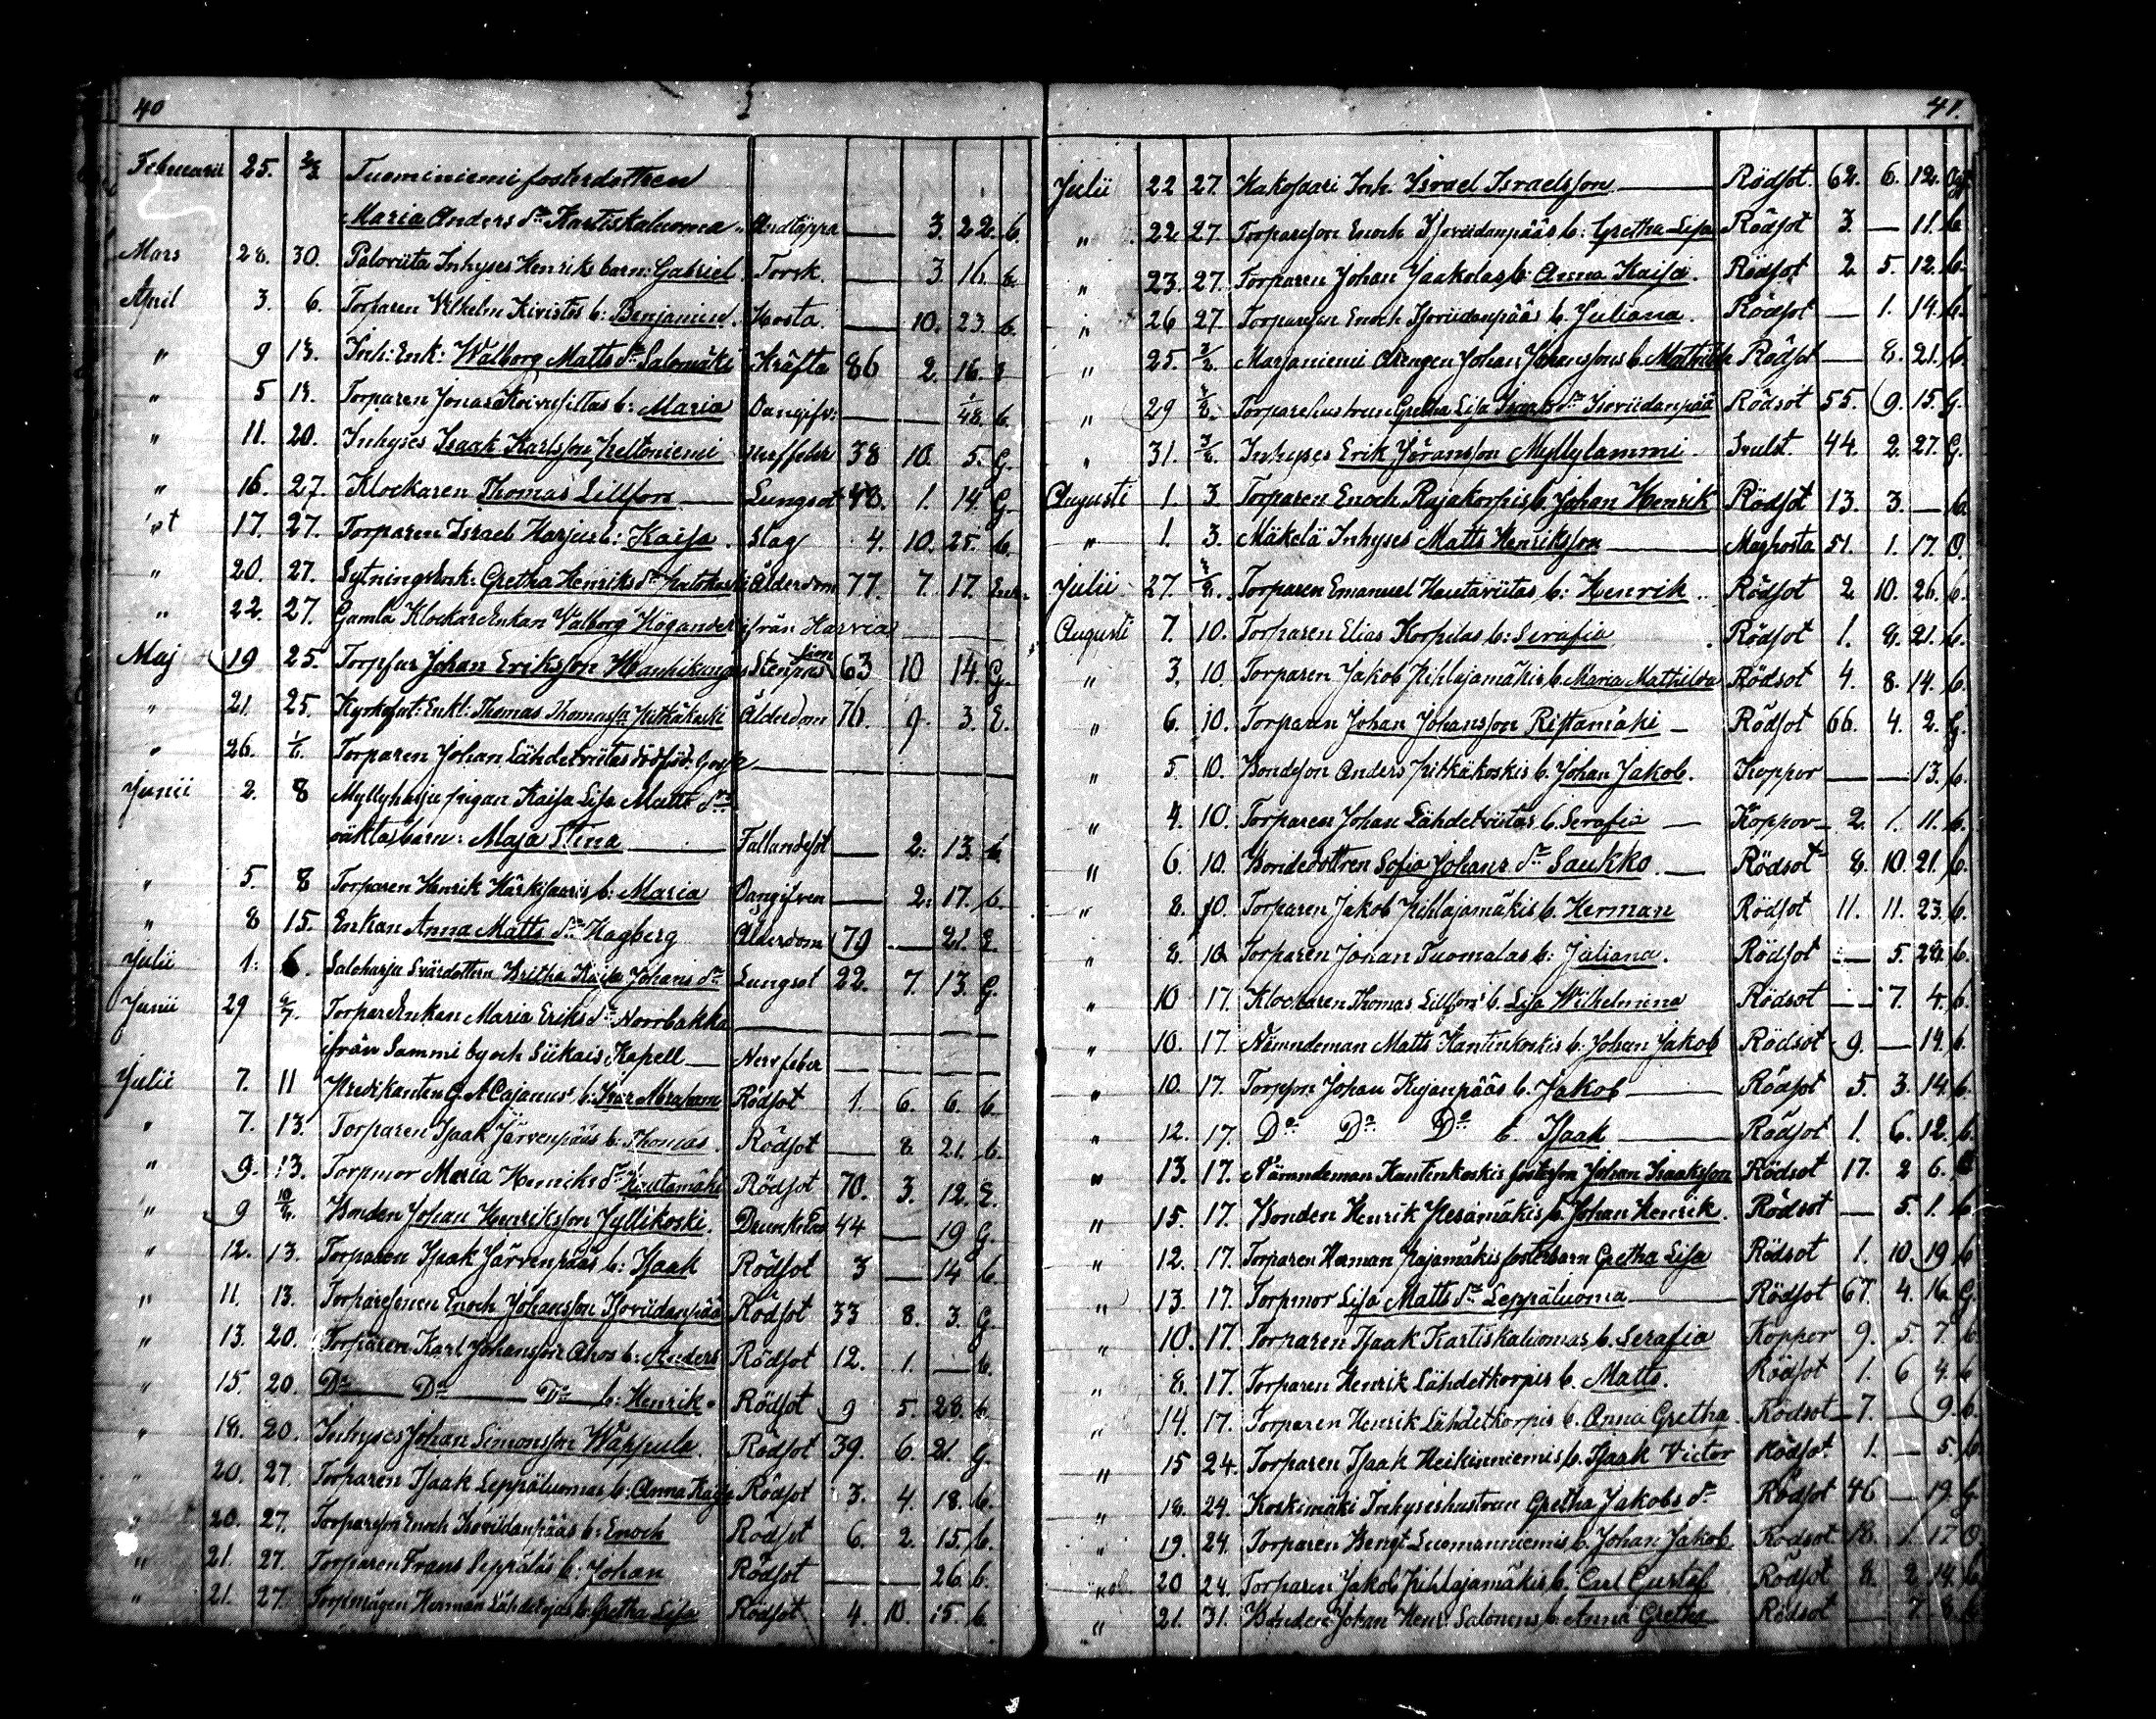 40
Februarii 25. 2/3 Tuominiemi fosterdottren
Maria Anders Dr Kartiskaluoma Andtäppa — 3. 22. b.
Mars 28. 30. Paloviita Inhyses Henriks barn: Gabriel Torsk. — 3 16. b.
April 3. 6. Torparen Vilhelm Kivistös b: Benjamin. Hosta. — 10. 23 b.
" 9 13. Inh: Enk: Walborg Matts Dr Salomäki Kräfta 86 2. 16. E
" 5 13. Torparen Jonas Koivusillas b: Maria Oangifv: — — 1/48. b.
" 11. 20. Inhyses Isaak Karlsson Peltoniemi Nerffeber 38 10. 5. G.
" 16. 27. Klockaren Thomas Lillfors — Lungsot 48. 1. 14. G.
17. 27. Torparen Israel Harjus b: Kaisa. Slag 4. 10. 25. b.
" 20. 27. Sytningsenk: Gretha Henriks Dr Ålderdom 77. 7. 17. Enk.
" 22. 27. Gamla Klockarenkan Walborg Högander ifrån Karvia — —
Maj 19 25. Johan Eriksson Stenpassion 63 10 14. G.
" 21. 25. Kyrkofat: Enkl: Thomas Thomass: Pitkäkoski Ålderdom 76. 9. 3. E.
" 26. 1/6. Torparen Johan Lähdetviitas dödföd: Gosse — — —
Junii 2. 8 Myllyharju pigan Kaisa Lisa Matts Drs
oäkta barn: Maja Stina — Fallandesot — 2. 13. b.
" 5. 8 Torparen Henrik Härkisaaris b: Maria Oangifven — 2. 17. b.
" 8 15. Enkan Anna Matts Dr Hagberg Ålderdom 79 — 21. E.
Julii 1. 6. Saloharju Svärdottern Britha Kaisa Johans Dr Lungsot 22. 7. 13. G.
Junii 29 6/7. Torparenkan Maria Eriks Dr Norrbakka — — —
ifrån Sammi by och Siikais Kapell — Nervfeber — — —
Julii 7. 11 Predikanten G. A. Cajanus' b: Ivar Abraham Rödsot 1. 6. 6. b.
" 7. 13. Torparen Isaak Järvenpääs b: Thomas. Rödsot — 8 21. b.
" 9. 13. Torpmor Maria Henriks Dr Rödsot 70. 3. 12. E.
" 9 Bonden Johan Henriksson Jyllikoski. 44 — 19 G.
" 12. 13. Torparen Isaak Järvenpääs b: Isaak Rödsot 3 — 14 b.
" 11. 13. Torparesonen Enoch Johansson Isoviidanpää Rödsot 33 8. 3. G.
" 13. 20. Torparen Karl Johansson Ahos b: Anders Rödsot 12. 1. — b.
" 15. 20. Do — Do — Do — b: Henrik. Rödsot 9 5. 28. b.
" 18. 20. Inhyses Johan Simonsson Wäppula. Rödsot 39. 6. 21. G.
" 20. 27. Torparen Isaak Leppäluomas b: Anna Kaisa Rödsot 3. 4. 18. b.
" 20. 27. Torpareson Enoch Isoviidanpääs b: Enoch Rödsot 6. 2. 15. b.
" 21. 27. Torparen Frans Seppäläs b: Johan Rödsot — — 26. b.
" 21. 27. Torpmågen Herman Lähdeojas b: Gretha Lisa Rödsot 4. 10. 15. b.
41.
Julii 22 27. Kakosaari Inh. Israel Israelsson — Rödsot. 62. 6. 12.
" 22. 27. Torpareson Enoch Isoviidanpääs b: Gretha Lisa Rödsot 3. — 11. b.
" 23. 27. Torparen Johan Jaakolas b: Anna Kaisa. Rödsot 2. 5. 12. b.
" 26 27. Torpareson Enoch Isoviidanpääs b. Juliana. Rödsot — 1. 14. b.
" 25. 3/8. Marjaniemi drengen Johan Johanssons b. Mathilda Rödsot — 8. 21. b.
" 29 3/8. Torparehustrun Gretha Lisa Isaks Dr Isoviidanpää Rödsot 55. 9. 15. G.
" 31. 3/8. Inhyses Erik Jöransson Myllylammi. Svulst. 44. 2. 27. G.
Augusti 1. 3 Torparen Enoch Rajakorpis b. Johan Henrik Rödsot 13. 3. — b.
" 1. 3. Mäkelä Inhyses Matts Henriksson — Maghosta 51. 1. 17. O.
Julii 27. 3/8. Torparen Emanuel Hautaviitas b: Henrik. Rödsot 2 10. 26. b.
Augusti 7. 10. Torparen Elias Korpelas b: Serafia. Rödsot 1. 8. 21. b.
" 3. 10. Torparen Jakob Pihlajamäkis b. Maria Mathilda Rödsot 4. 8. 14. b.
" 6. 10. Torparen Johan Johansson Ristamäki — Rödsot 66. 4. 2. G.
" 5. 10. Bondeson Anders Pitkäkoskis b. Johan Jakob. Koppor — — 13. b.
" 4. 10. Torparen Johan Lähdetviitas b. Serafia — Koppor — 2. 1. 11. b.
" 6. 10. Bondedottren Sofia Johans Dr Saukko. — Rödsot 8. 10. 21. b.
" 8. 10. Torparen Jakob Pihlajamäkis b. Herman Rödsot 11. 11. 23. b.
" 8. 10. Torparen Johan Tuomalas b: Juliana. Rödsot — 5. 28. b.
" 10 17. Klockaren Thomas Lillfors' b. Lisa Wilhelmina Rödsot — 7. 4. b.
" 10. 17. Nämndeman Matts Kantinkoskis b: Johan Jakob Rödsot 9. — 14. b.
" 10. 17. Torpson Johan Kujanpääs b. Jakob — Rödsot 5. 3. 14. b.
" 12. 17. Do Do Do b. Isaak — Rödsot 1. 6. 12. b.
" 13. 17. Nämndeman Kantinkoskis fosterson Johan Isaaksson Rödsot 17. 2 6.
" 15. 17. Bonden Henrik Kesämäkis b. Johan Henrik. Rödsot — 5. 1. b
" 12. 17. Torparen Herman Rajamäkis fosterbarn Gretha Lisa Rödsot 1. 10 19 b
" 13. 17. Torpmor Lisa Matts Dr Leppäluoma — Rödsot 67. 4. 16. G.
" 10. 17. Torparen Isaak Kartiskaluomas b. Serafia Koppor 9. 5. 7. b
" 8. 17. Torparen Henrik Lähdetkorpis b. Matts. Rödsot 1. 6 4. b
" 14. 17. Torparen Henrik Lähdetkorpis b. Anna Gretha Rödsot 7. — 9. b.
" 15 24. Torparen Isaak Heikinniemis b. Isaak Victor Rödsot 1. — 5. b.
" 18. 24. Koskimäki Inhyseshustrun Gretha Jakobs Dr Rödsot 46 — 19. G.
" 19. 24. Torparen Bengt Luomanniemis b. Johan Jakob Rödsot 18. 1. 17 O.
20 24. Torparen Jakob Pihlajamäkis b. Carl Gustaf Rödsot 8. 2 14. b
" 21. 31. Bonden Johan Henr. Salonens b. Anna Gretha Rödsot — 7. 8. b